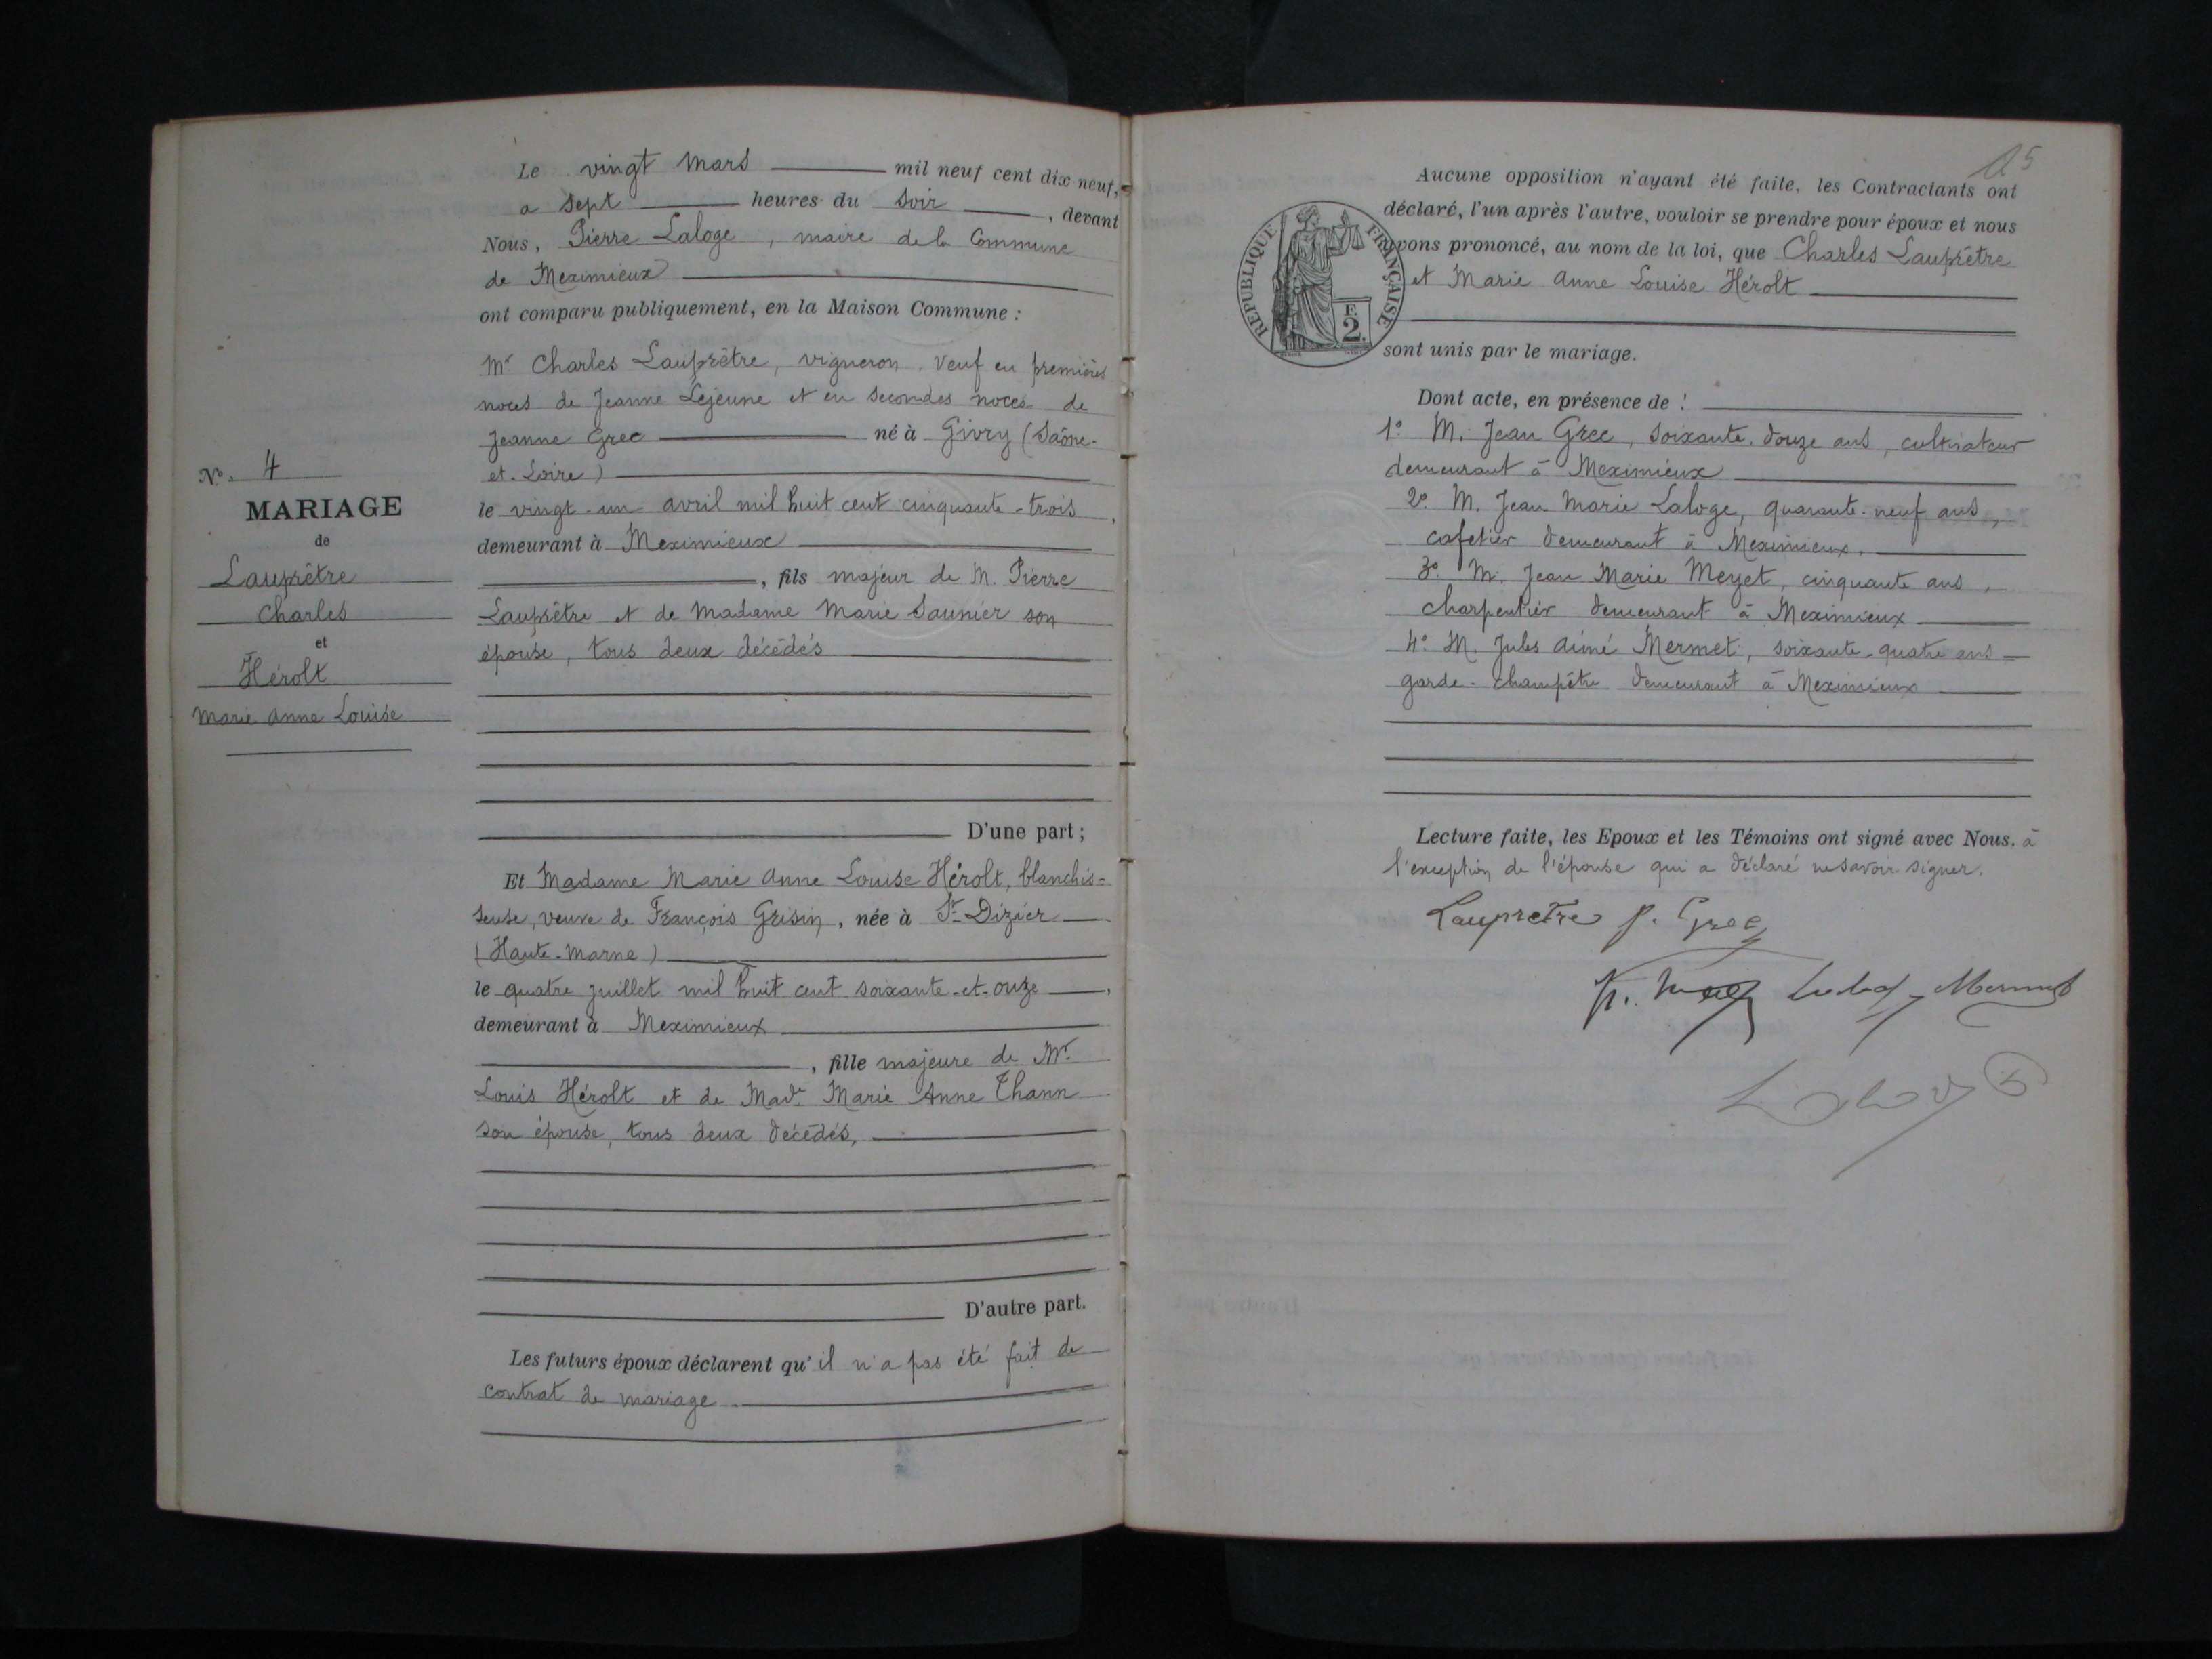 N° 4
MARIAGE
de
Lauprêtre
Charles
et
Hérolt
Marie Anne Louise
Le vingt Mars mil neuf cent dix neuf,
a sept heures du soir, devant
Nous, Pierre Laloge, maire de la Commune
de Meximieux
ont comparu publiquement, en la Maison Commune :
Mr Charles Lauprêtre, vigneron, veuf en premières
noces de Jeanne Lejeune et en secondes noces de
Jeanne Grec né à Givry (Saône-
et-Loire)
le vingt-un avril mil huit cent cinquante-trois,
demeurant à Meximieux
, fils majeur de M. Pierre
Lauprêtre et de Madame Marie Saunier son
épouse, tous deux décédés
D'une part ;
Et Madame Marie Anne Louise Hérolt, blanchis-
seuse, veuve de François Grisin, née à St-Dizier
(Haute-Marne)
le quatre juillet mil huit cent soixante-et-onze,
demeurant à Meximieux
, fille majeure de Mr
Louis Hérolt et de Made Marie Anne Thann
son épouse, tous deux décédés,
D'autre part.
Les futurs époux déclarent qu'il n'a pas été fait de
contrat de mariage
15
Aucune opposition n'ayant été faite, les Contractants ont
déclaré, l'un après l'autre, vouloir se prendre pour époux et nous
avons prononcé, au nom de la loi, que Charles Lauprêtre
et Marie Anne Louise Hérolt
REPUBLIQUE FRANÇAISE
F. 2.
sont unis par le mariage.
Dont acte, en présence de :
1° M. Jean Grec, soixante-douze ans, cultivateur
demeurant à Meximieux
2° M. Jean Marie Laloge, quarante-neuf ans,
cafetier demeurant à Meximieux.
3° M. Jean Marie Meyet, cinquante ans,
charpentier demeurant à Meximieux
4° M. Jules Aimé Mermet, soixante-quatre ans
garde-champêtre demeurant à Meximieux
Lecture faite, les Epoux et les Témoins ont signé avec Nous. à
l'exception de l'épouse qui a déclaré ne savoir signer.
Laupretre J. Grec
Mermet